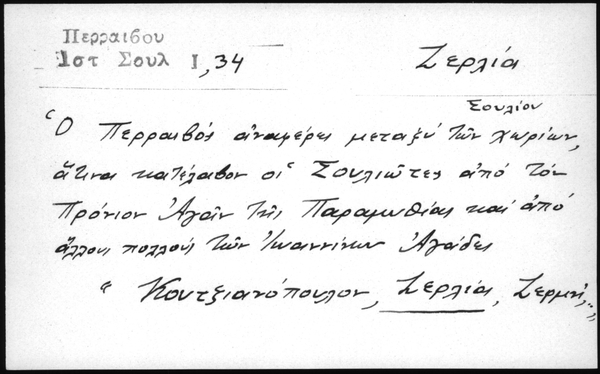 Περραιβου
Ιστ Σουλ Ι, 34
Ζερλία
Σουλίου
Ὁ Περραιβός ἀναφέρει μεταξύ τῶν χωρίων,
ἅτινα κατέλαβον οἱ Σουλιῶτες ἀπό τόν
Πρόνιον Ἀγᾶν τῆς Παραμυθίας καί ἀπό
ἄλλους πολλούς τῶν Ἰωαννίνων Ἀγάδες
" Κουτξιανόπουλον, Ζερλίαι, Ζερμή,..,,